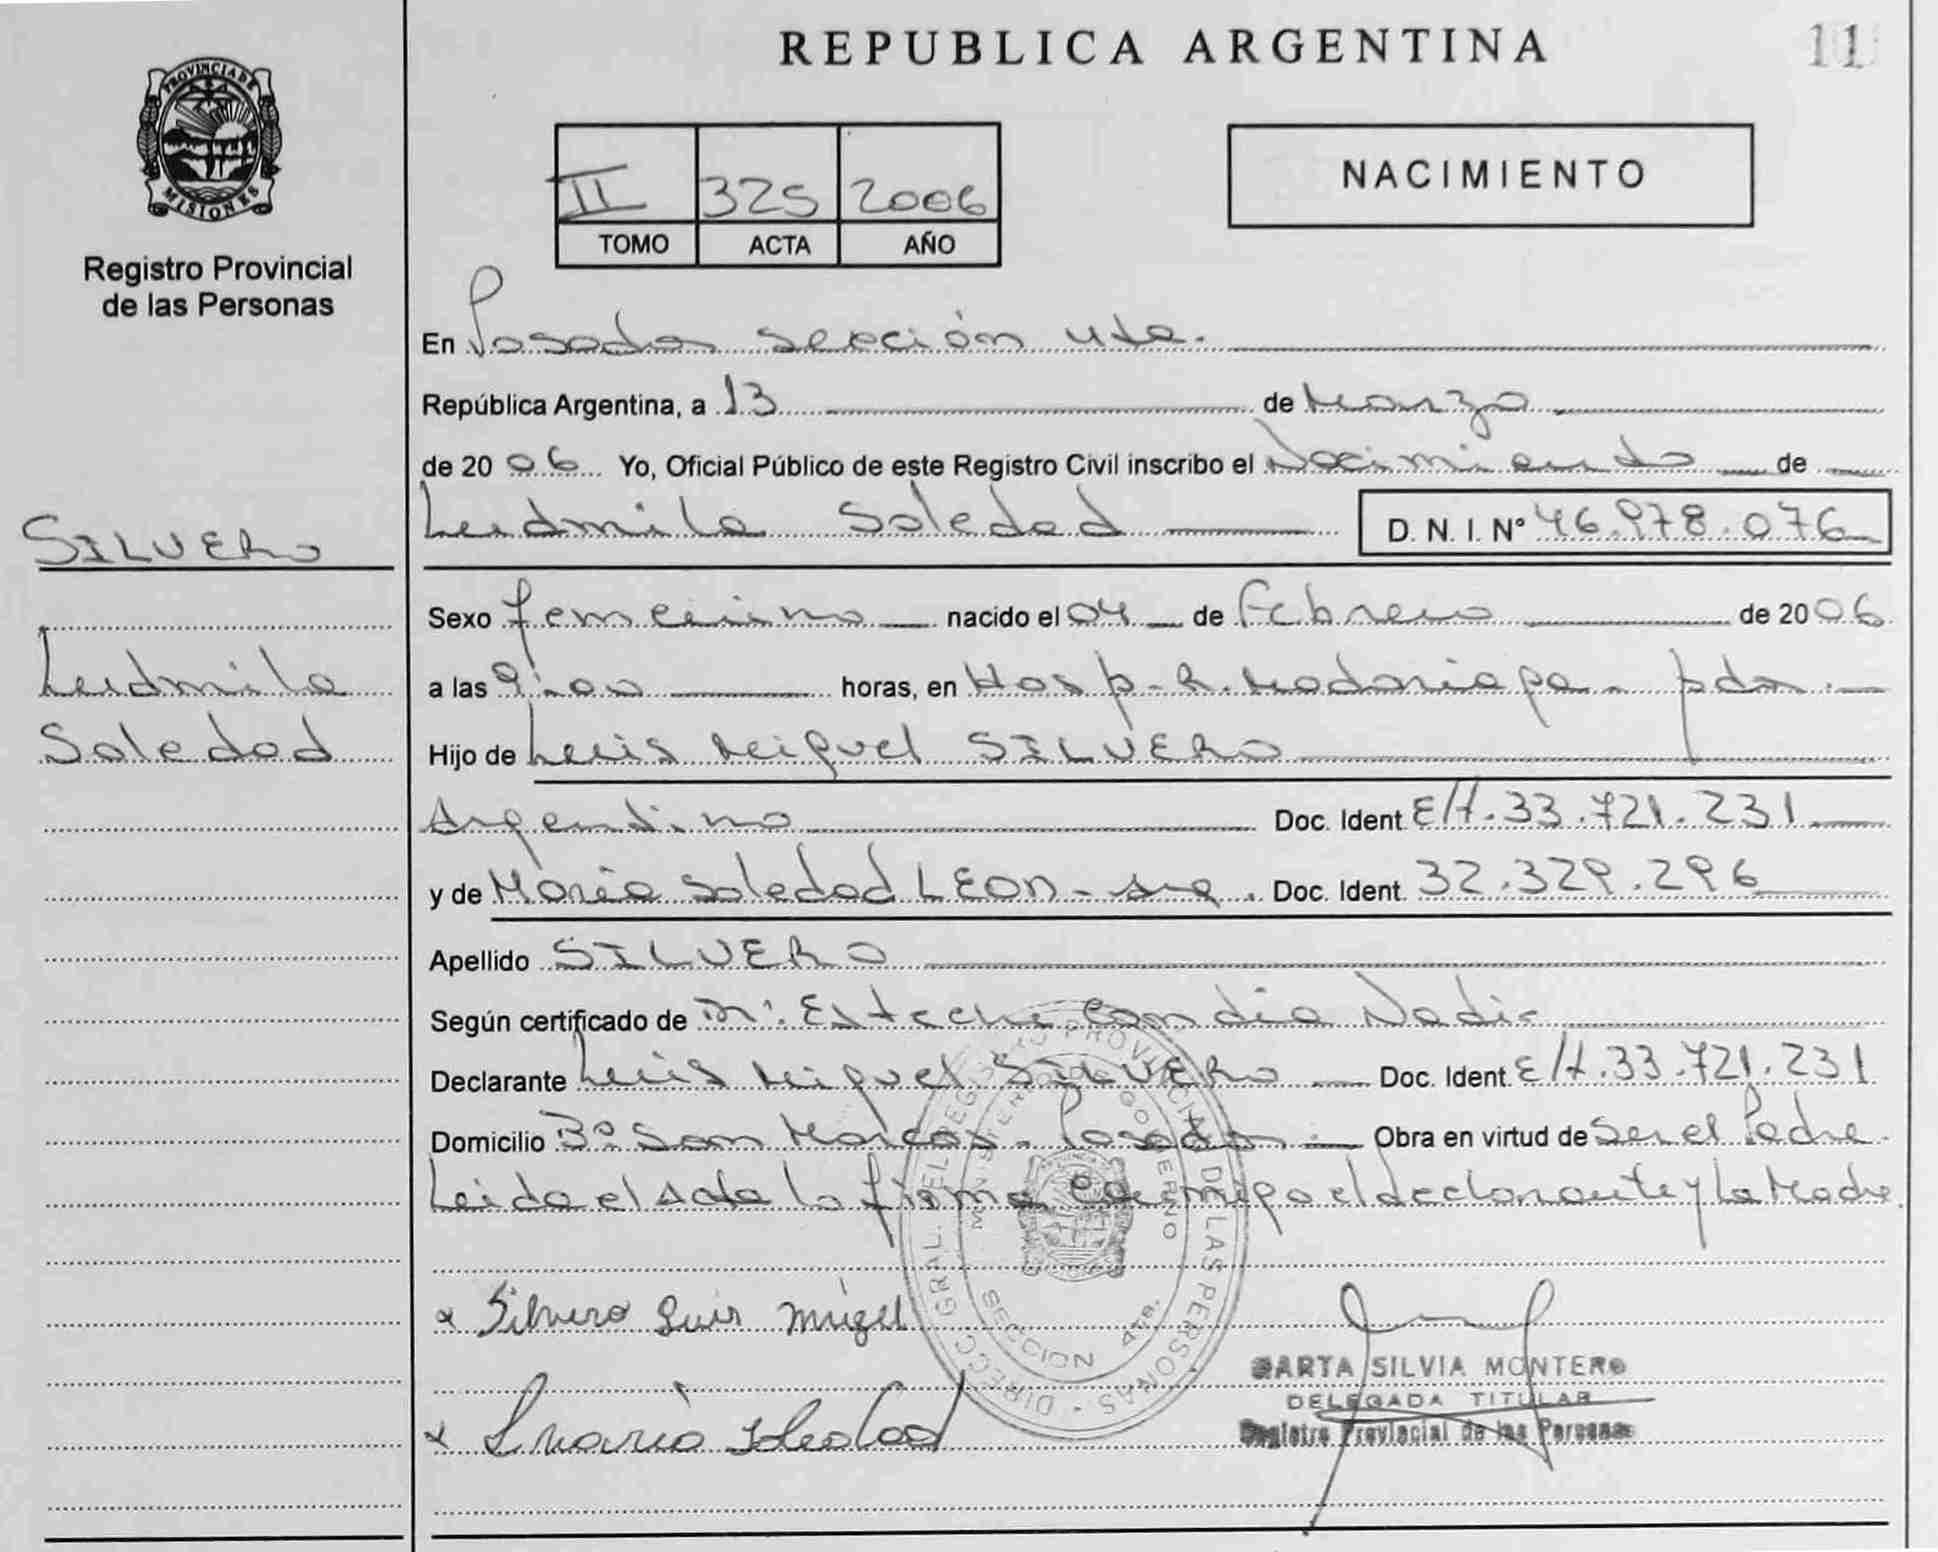 REPUBLICA ARGENTINA
11
PROVINCIA DE
MISIONES
Registro Provincial
de las Personas
II 325 2006
TOMO ACTA AÑO
NACIMIENTO
En Posadas sección 4ta.
República Argentina, a 13 de Marzo
de 2006 Yo, Oficial Público de este Registro Civil inscribo el Nacimiento de
Ludmila Soledad D. N. I. Nº 46.978.076
SILVERO
Ludmila
Soledad
Sexo femenino nacido el 04 de Febrero de 2006
a las 9:00 horas, en Hosp. R. Madariaga - pdas.
Hijo de Luis Miguel SILVERO
Argentino Doc. Ident E/t. 33.721.231
y de María Soledad LEON - Arg. Doc. Ident. 32.329.296
Apellido SILVERO
Según certificado de Esteche Candia Nadia
Declarante Luis Miguel SILVERO Doc. Ident. E/t. 33.721.231
Domicilio Bº San Marcos - Posadas. Obra en virtud de Ser el Padre.
Leida el Acta la firma conmigo el declarante y la Madre.
DIRECC. GRAL. DEL REGISTRO PROVINCIAL DE LAS PERSONAS
MINISTERIO DE GOBIERNO
SECCION 4TA.
x Silvero Luis Migel
x Maria Soledad
MARTA SILVIA MONTERO
DELEGADA TITULAR
Registro Provincial de las Personas